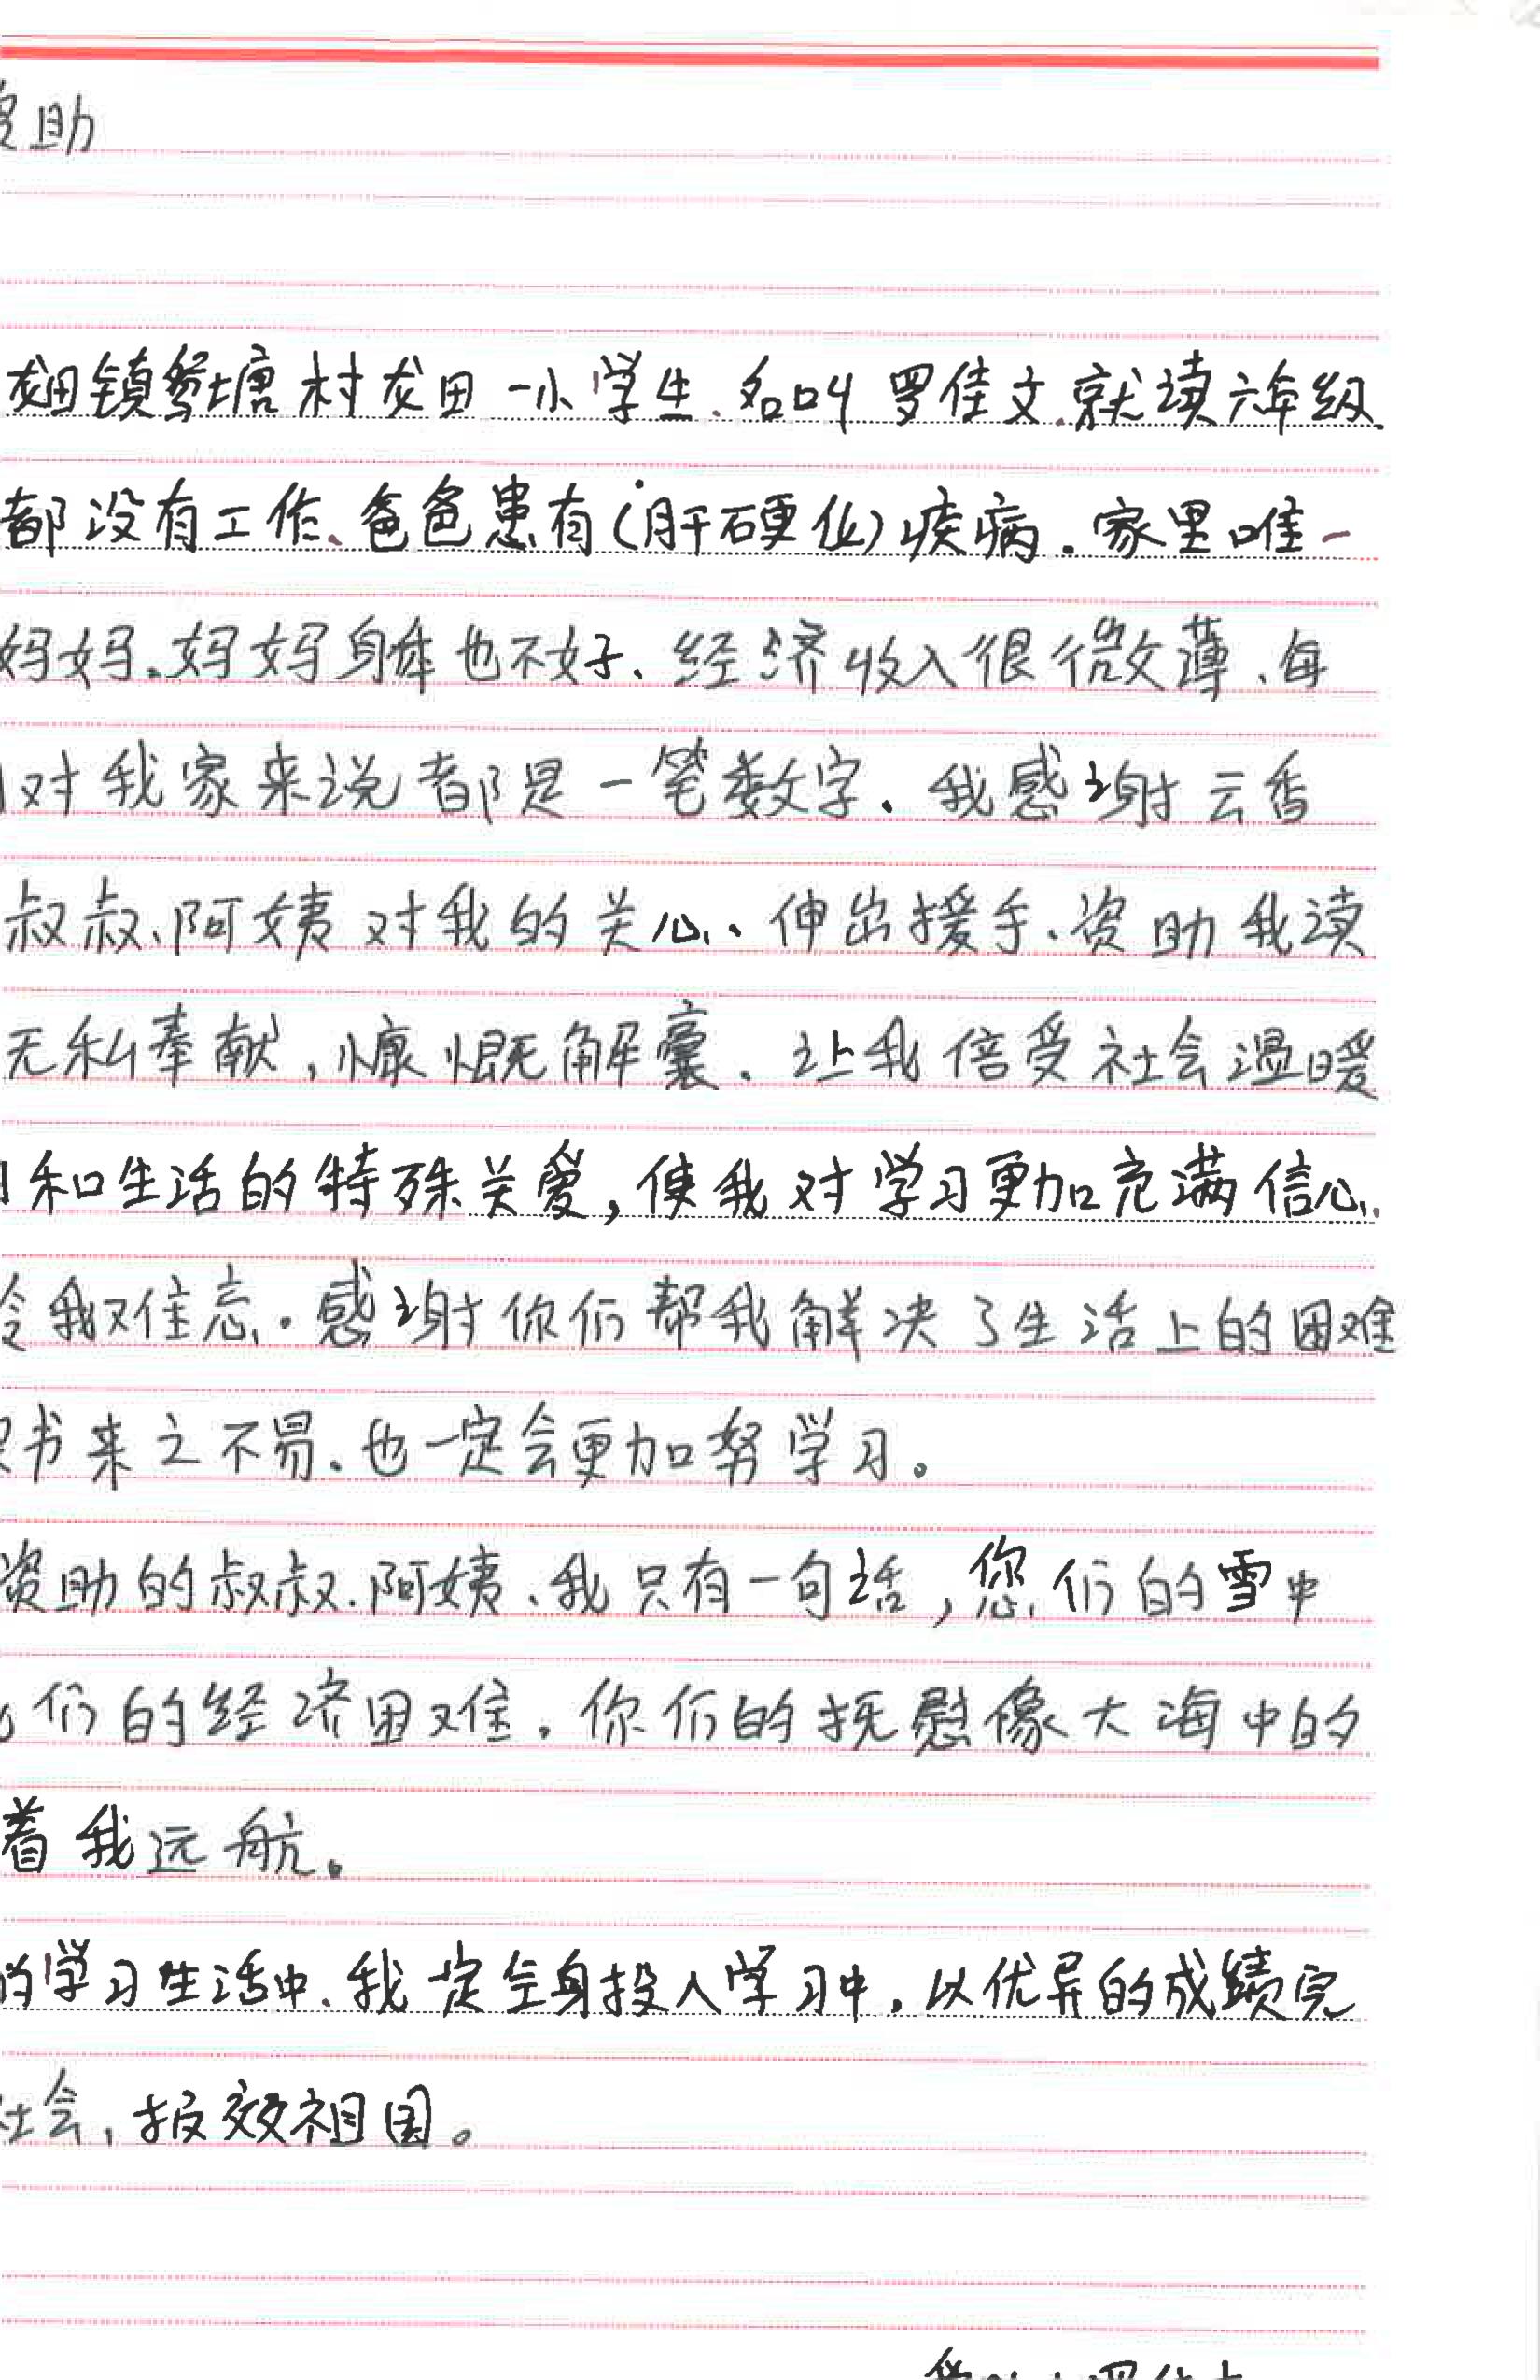 资助
龙田镇塘村龙田一小学生、名叫罗佳文.就读六年级.
都没有工作、爸爸患有(肝硬化)疾病.家里唯一
妈妈.妈妈身体也不好、经济收入很微薄、每
对我家来说都是一笔数字、我感谢云香
叔叔、阿姨对我的关心、伸出援手、资助我读
无私奉献,慷慨解囊、让我倍受社会温暖
和生活的特殊关爱,使我对学习更加充满信心.
令我难忘.感谢你们帮我解决了生活上的困难
书来之不易、也一定会更加努学习。
资助的叔叔.阿姨、我只有一句话,您们的雪中
们的经济困难.你们的抚慰像大海中的
着我远航。
的学习生活中.我定全身投入学习中.以优异的成绩完
社会,报效祖国。